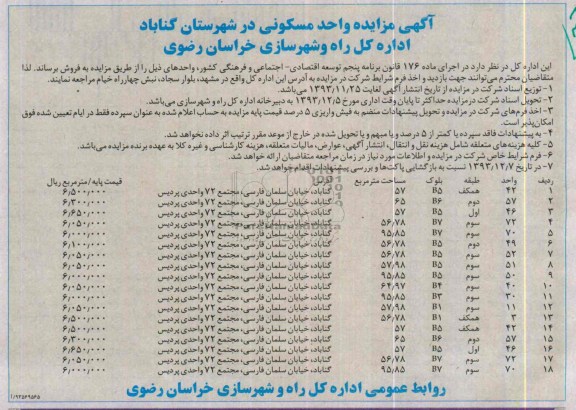 آگهی مزایده واحد مسکونی در شهرستان گناباد
اداره کل راه وشهرسازی خراسان رضوی
این اداره کل در نظر دارد در اجرای ماده ۱۷۶ قانون برنامه پنجم توسعه اقتصادی- اجتماعی و فرهنگی کشور، واحدهای ذیل را از طریق مزایده به فروش برساند. لذا
متقاضیان محترم می‌توانند جهت بازدید و اخذ فرم شرایط شرکت در مزایده به آدرس این اداره کل واقع در مشهد، بلوار سجاد، نبش چهارراه خیام مراجعه نمایند.
۱- توزیع اسناد شرکت در مزایده از تاریخ انتشار آگهی لغایت ۱۳۹۳/۱۱/۲۵ می‌باشد.
۲- تحویل اسناد شرکت در مزایده حداکثر تا پایان وقت اداری مورخ ۱۳۹۳/۱۲/۵ به دبیرخانه اداره کل راه و شهرسازی می‌باشد.
۳- اخذ فرم‌های شرکت در مزایده و تحویل پیشنهادات منضم به فیش واریزی ۵ درصد قیمت پایه مزایده به حساب اعلام شده به عنوان سپرده فقط در ایام تعیین شده فوق
امکان‌پذیر است.
۴- به پیشنهادات فاقد سپرده یا کمتر از ۵ درصد و یا مبهم و یا تحویل شده در خارج از موعد مقرر ترتیب اثر داده نخواهد شد.
۵- کلیه هزینه‌های متعلقه شامل هزینه نقل و انتقال، انتشار آگهی، عوارض، مالیات متعلقه، هزینه کارشناسی و غیره کلا به عهده برنده مزایده می‌باشد.
۶- فرم شرایط خاص شرکت در مزایده و اطلاعات مورد نیاز در زمان مراجعه متقاضیان ارائه خواهد شد.
۷- در تاریخ ۱۳۹۳/۱۲/۷ نسبت به بازگشایی پاکت‌ها و بررسی پیشنهادات اقدام خواهد شد.
ردیف واحد طبقه بلوک مساحت مترمربع قیمت پایه/مترمربع ریال
۱ ۴۲ همکف B۵ ۵۷ گناباد، خیابان سلمان فارسی، مجتمع ۷۲ واحدی پردیس ۶٫۵۰۰٫۰۰۰
۲ ۵۷ دوم B۶ ۶۵ گناباد، خیابان سلمان فارسی، مجتمع ۷۲ واحدی پردیس ۶٫۳۰۰٫۰۰۰
۳ ۴۶ اول B۵ ۵۷ گناباد، خیابان سلمان فارسی، مجتمع ۷۲ واحدی پردیس ۶٫۶۵۰٫۰۰۰
۴ ۷۲ سوم B۷ ۵۶٫۷۸ گناباد، خیابان سلمان فارسی، مجتمع ۷۲ واحدی پردیس ۶٫۰۵۰٫۰۰۰
۵ ۷۰ سوم B۷ ۹۵٫۸۵ گناباد، خیابان سلمان فارسی، مجتمع ۷۲ واحدی پردیس ۶٫۰۰۰٫۰۰۰
۶ ۴۹ دوم B۵ ۵۶٫۷۸ گناباد، خیابان سلمان فارسی، مجتمع ۷۲ واحدی پردیس ۶٫۱۰۰٫۰۰۰
۷ ۵۲ سوم B۵ ۵۶٫۷۸ گناباد، خیابان سلمان فارسی، مجتمع ۷۲ واحدی پردیس ۶٫۰۵۰٫۰۰۰
۸ ۵۱ سوم B۵ ۵۷٫۹۸ گناباد، خیابان سلمان فارسی، مجتمع ۷۲ واحدی پردیس ۶٫۰۵۰٫۰۰۰
۹ ۵۰ سوم B۵ ۹۵٫۸۵ گناباد، خیابان سلمان فارسی، مجتمع ۷۲ واحدی پردیس ۶٫۰۰۰٫۰۰۰
۱۰ ۴۰ سوم B۴ ۶۴٫۹۷ گناباد، خیابان سلمان فارسی، مجتمع ۷۲ واحدی پردیس ۶٫۰۵۰٫۰۰۰
۱۱ ۳۰ سوم B۳ ۹۵٫۸۵ گناباد، خیابان سلمان فارسی، مجتمع ۷۲ واحدی پردیس ۶٫۰۰۰٫۰۰۰
۱۲ ۱۱ سوم B۱ ۵۷٫۹۸ گناباد، خیابان سلمان فارسی، مجتمع ۷۲ واحدی پردیس ۶٫۰۵۰٫۰۰۰
۱۳ ۳ همکف B۱ ۵۶٫۷۸ گناباد، خیابان سلمان فارسی، مجتمع ۷۲ واحدی پردیس ۶٫۵۰۰٫۰۰۰
۱۴ ۴۲ همکف B۵ ۵۷ گناباد، خیابان سلمان فارسی، مجتمع ۷۲ واحدی پردیس ۶٫۵۰۰٫۰۰۰
۱۵ ۵۷ دوم B۶ ۶۵ گناباد، خیابان سلمان فارسی، مجتمع ۷۲ واحدی پردیس ۶٫۳۰۰٫۰۰۰
۱۶ ۴۶ اول B۵ ۵۷ گناباد، خیابان سلمان فارسی، مجتمع ۷۲ واحدی پردیس ۶٫۶۵۰٫۰۰۰
۱۷ ۷۲ سوم B۷ ۵۶٫۷۸ گناباد، خیابان سلمان فارسی، مجتمع ۷۲ واحدی پردیس ۶٫۰۵۰٫۰۰۰
۱۸ ۷۰ سوم B۷ ۹۵٫۸۵ گناباد، خیابان سلمان فارسی، مجتمع ۷۲ واحدی پردیس ۶٫۰۰۰٫۰۰۰
روابط عمومی اداره کل راه و شهرسازی خراسان رضوی